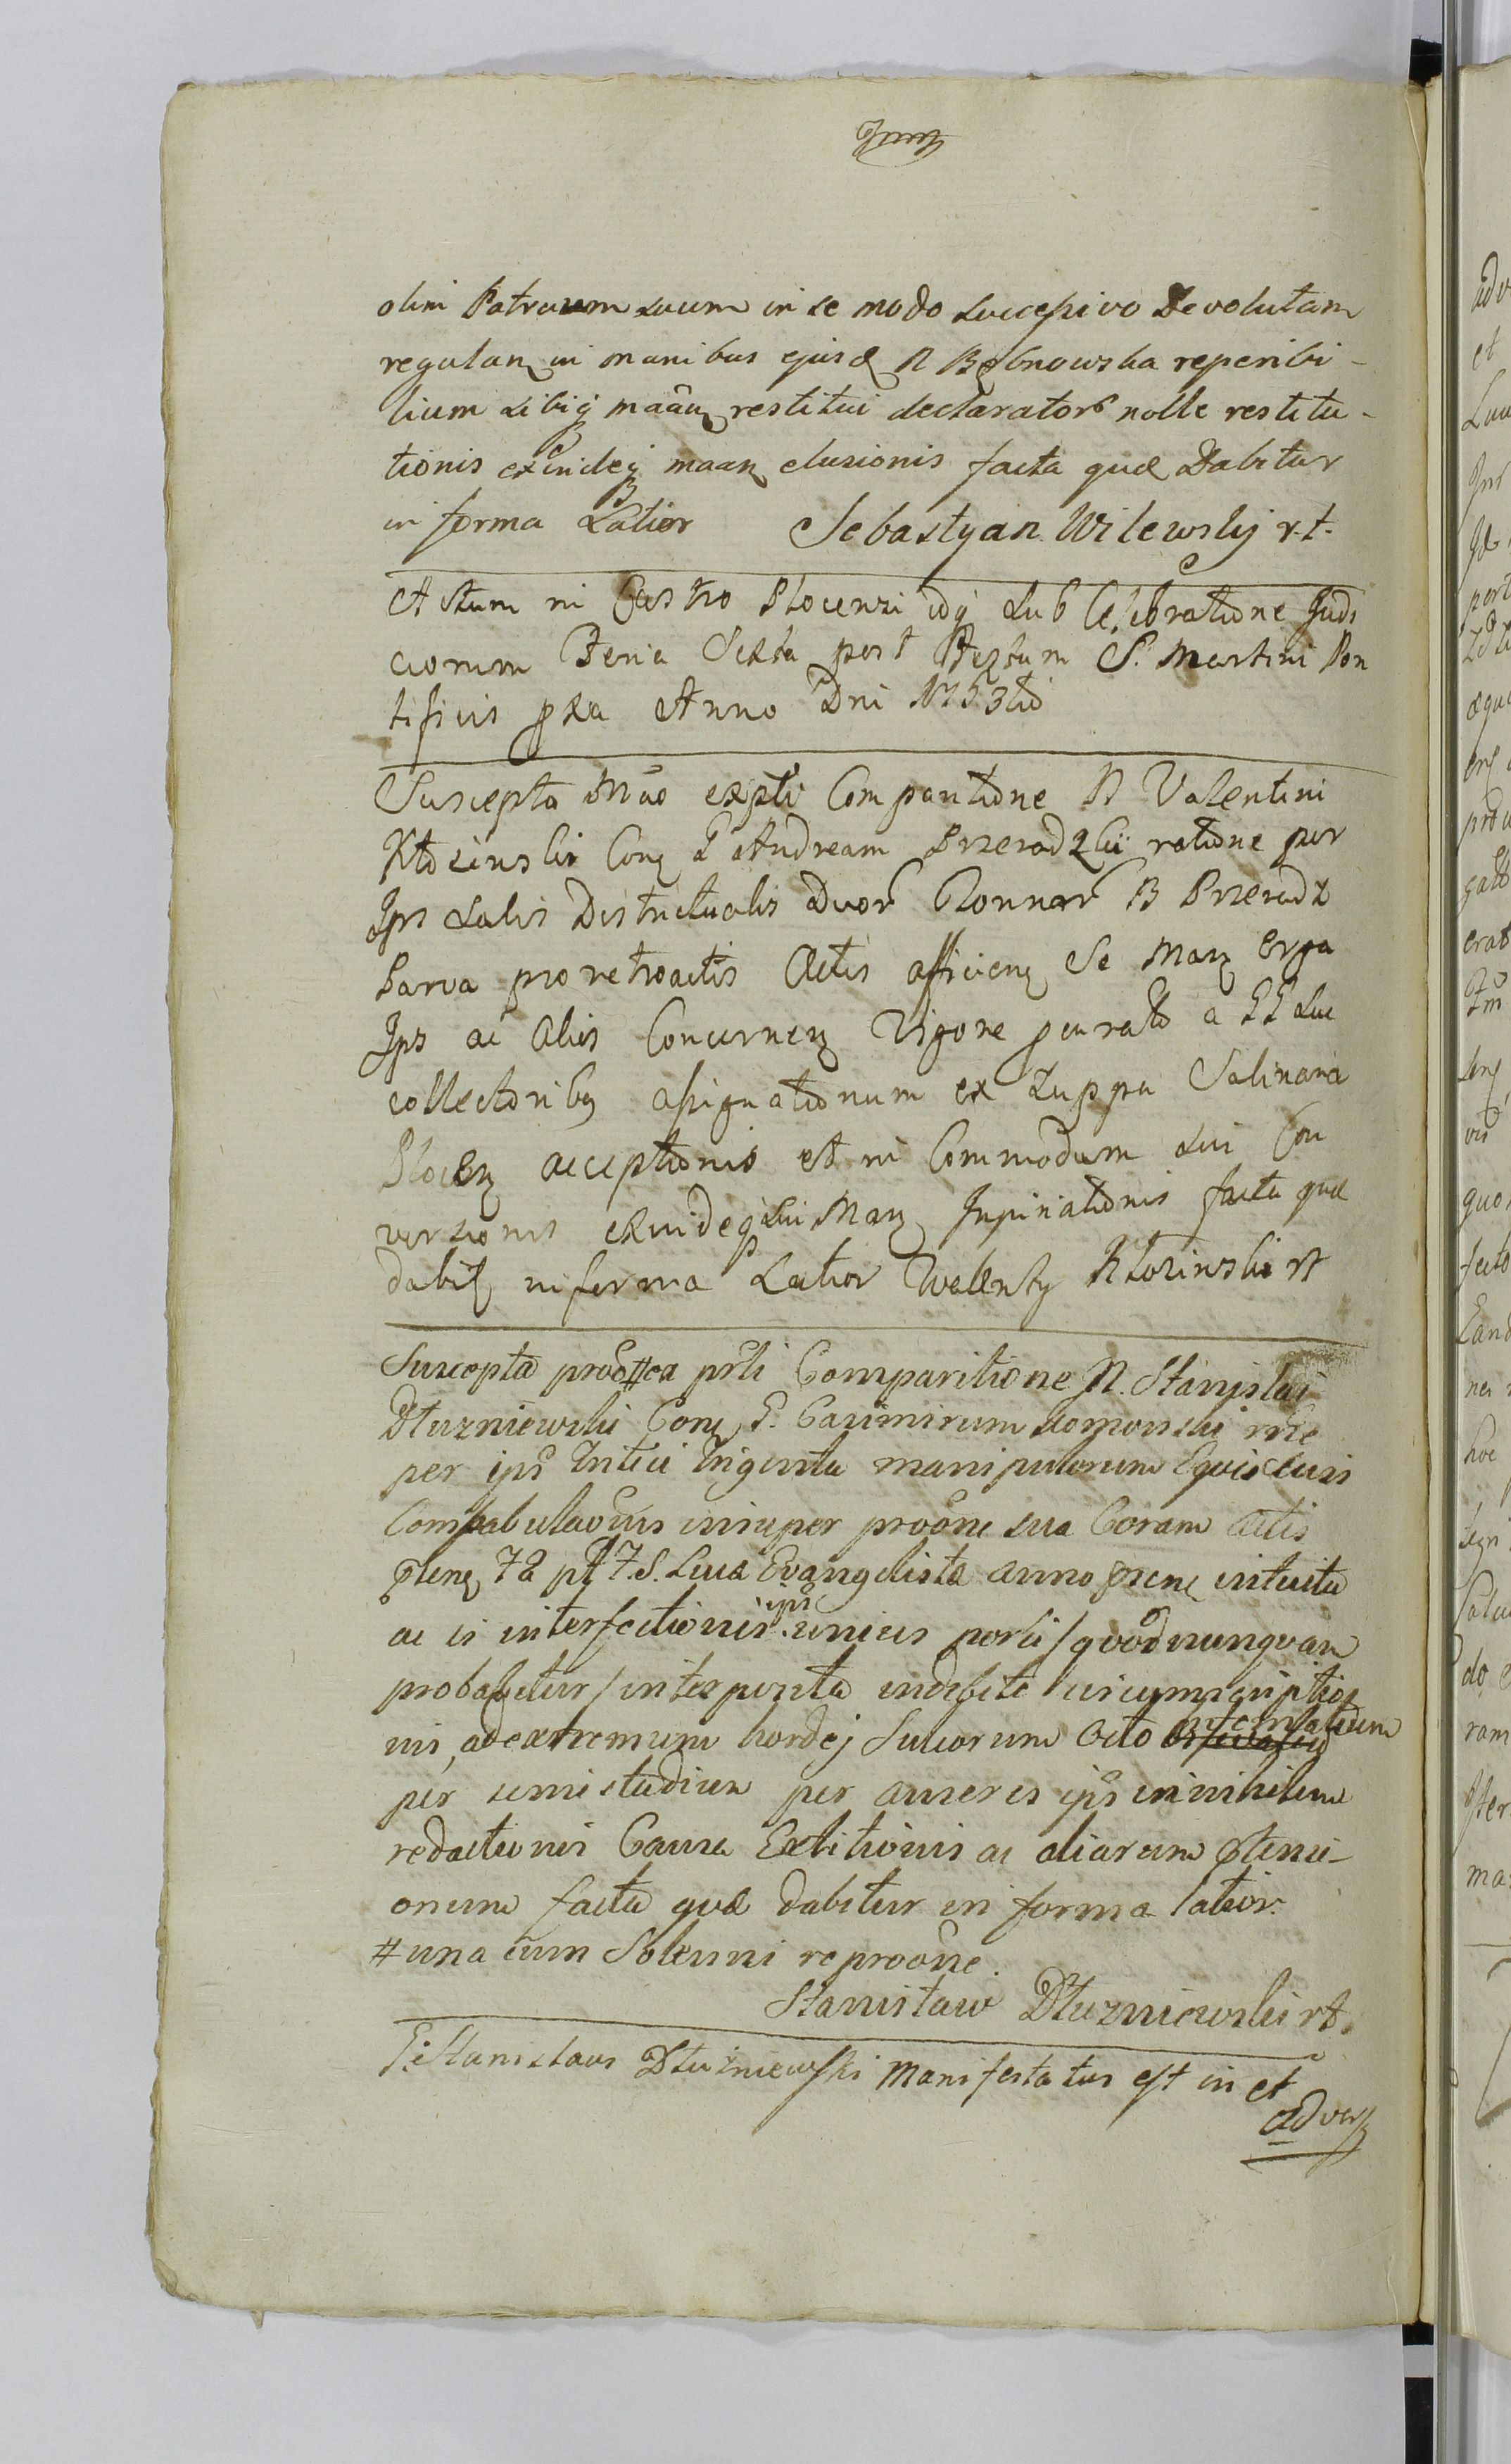 olim Patruum suum in se modo successivo Devolutam
regulan in manibus ejusd N Bębnowska reperibi-
lium sibiq maān restitui declarator nolle restitu-
tionis exindeq maan elusionis facta quæ Dabitur
in forma Latior Sebastyan Wilewskij r.t.
Actum in Castro Plocensi idq sub Celebratione Judi
ciorum Feria Sexta post Festum S. Martini Pon
tificis pxa Anno Dni 1753tio
Suscepta Mao expti Comparitione N Valentini
Kłosinski Con G Andream Przeradzkii ratione per
Ips Salis Districtualis Duor Tonnar B Przeradz
Parva pro retroactis Actis afficien se Man erga
Ips ac Aliis Concernen Vigore pcurato a GG Suc
collectoribq assignationum ex Zuppa Salinaria
Plocen acceptionis et in Commodum sui Con
versionis exindeq sui Man Inpiriationis facta quæ
dabit in forma Latior Walenty Kłosinski rt
Suscepta proo#ea prti Comparitione N. Stanislai
Dłuzniewski Con G. Casimirum Lomonski rne
per ips Tritici Triginta manipulorum Equis suis
Compabulaōnis insuper proōne sua Coram actis
pten 7a pt 7. S. Luca Evangelista anno psene intuitu
ac is interfectionis ips unius porci / quōd nunquam
probabitur / interposita indebite circumscriptio
nis, ad extremum hordej Sulcorum Octo seminatorum
per semistadium per anseres ips in nihilum
redactionis Causa Extitionis ac aliarum ptensi-
onum facta quæ dabitur in forma latior.
# una cum Solenni reproōne.
Stanisław Dłuzniewski rt.
G. Stanislaus Dłużniewski Manifestatus est in et
advers